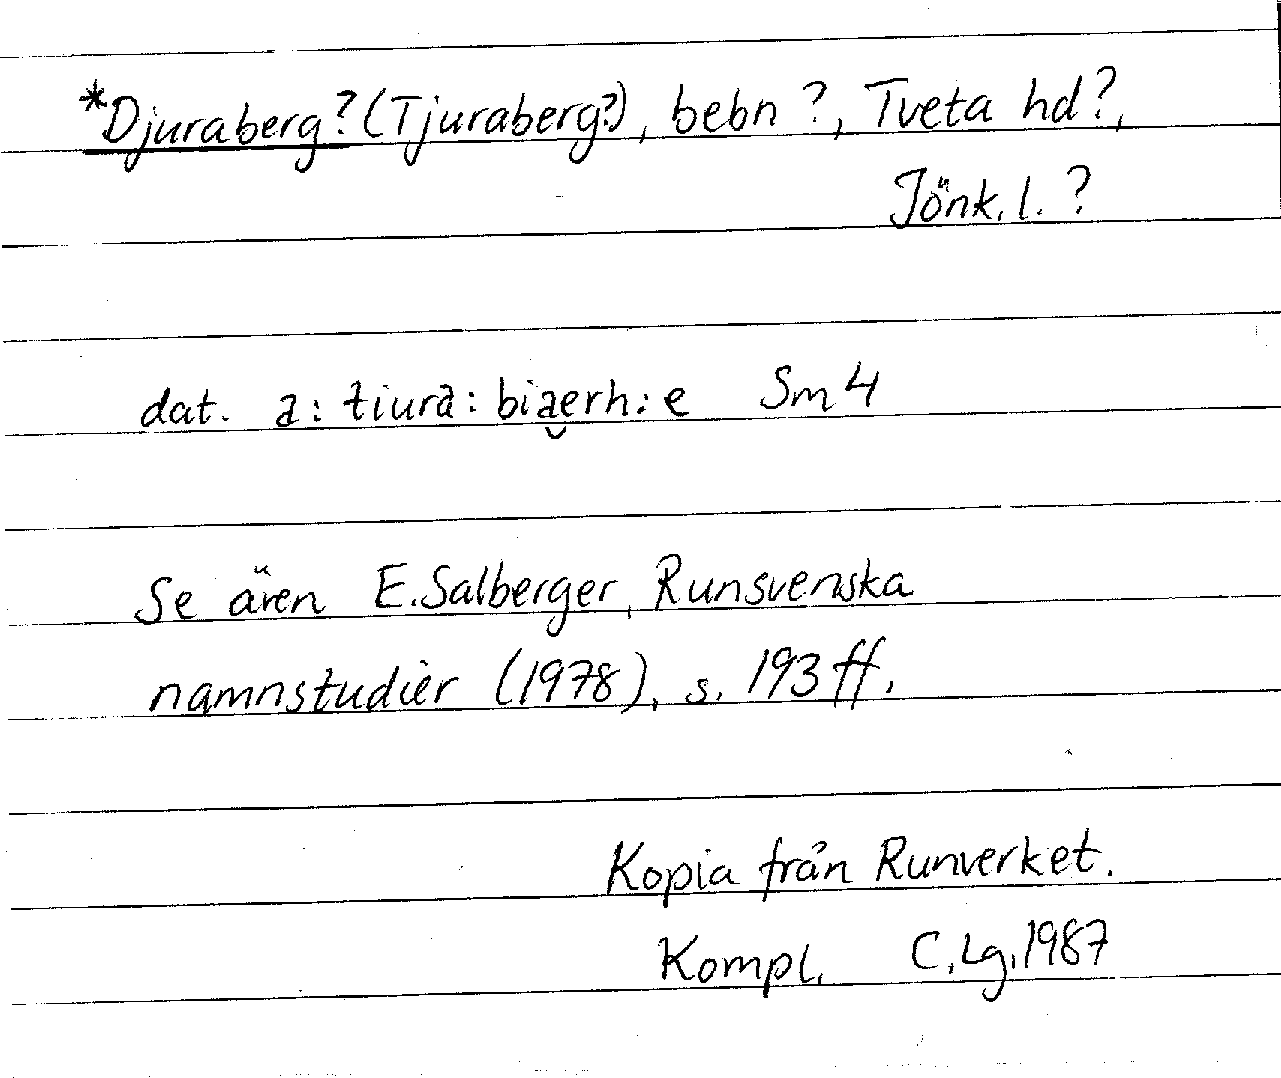 *Djuraberg? (Tjuraberg?), bebn?, Tveta hd?,
Jönk. l. ?
dat. a: tiura: biaerh: e Sm 4
Se även E. Salberger, Runsvenska
namnstudier (1978), s. 193 ff.
Kopia från Runverket.
Kompl. C. Lg. 1987